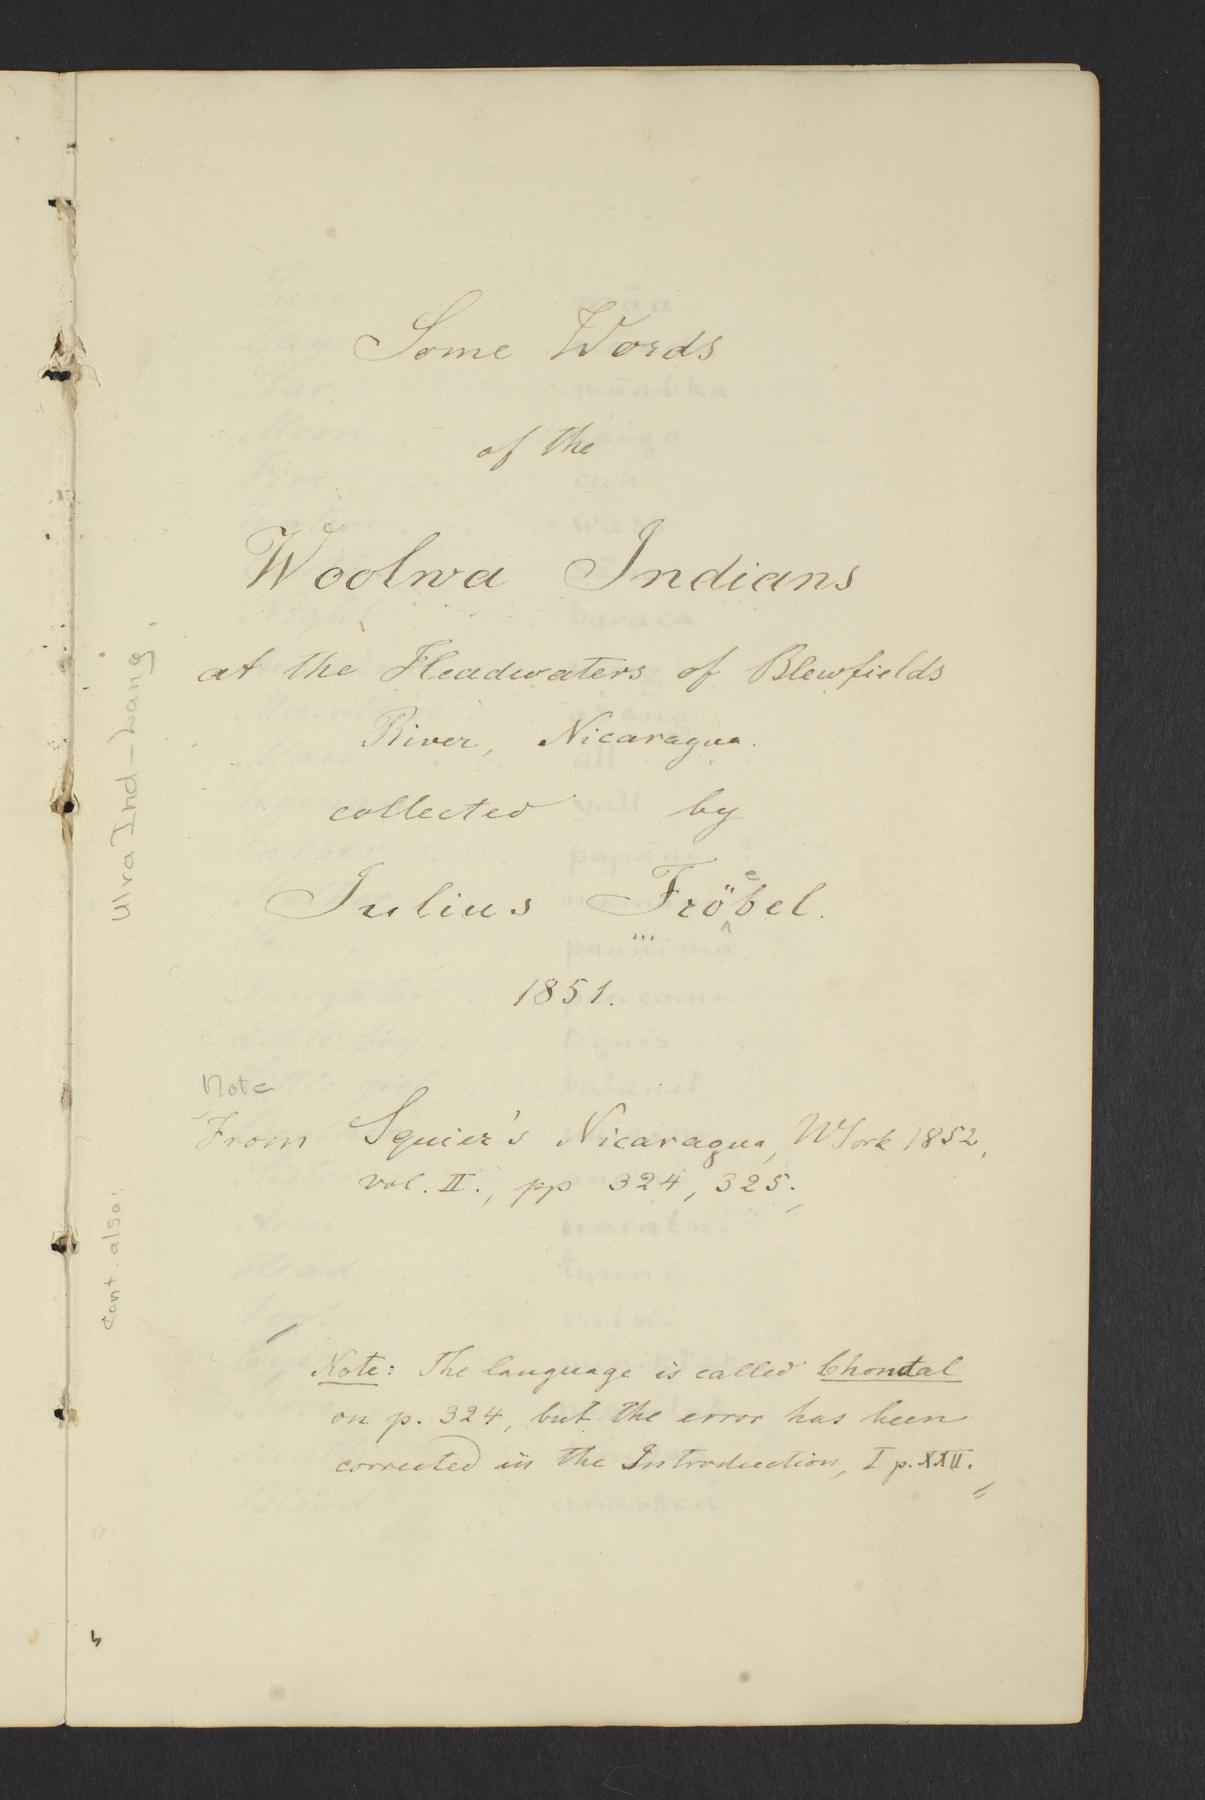 Some Words
of the
Woolwa Indians
at the Headwaters of Blewfields
River, Nicaragua.
collected by
Julius Fröebel.
1851.
Note
From Squier's Nicaragua, N York 1852,
vol. II., pp 324, 325.,
Note: The language is called Chontal
on p. 324, but the error has been
corrected in the Introduction, I p. XXII.
Ulva Ind-Lang.
cont. also: